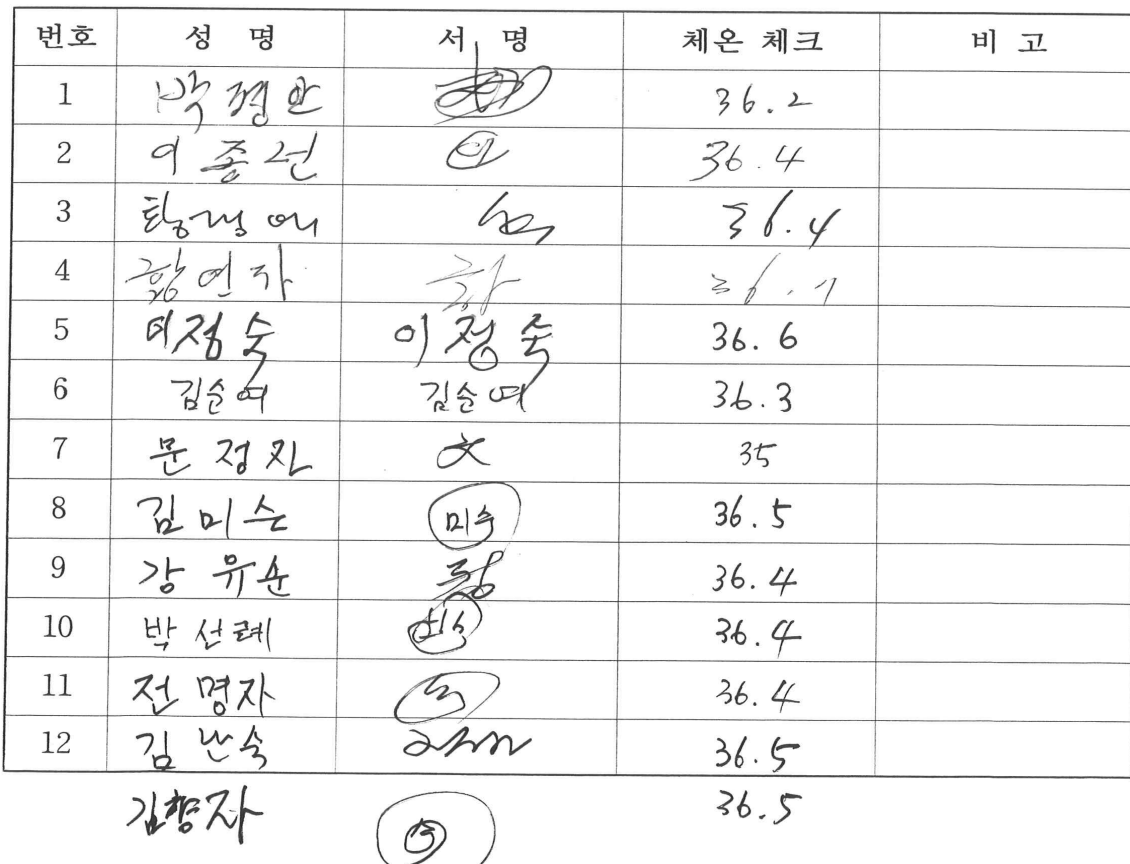 번호 성 명 서 명 체온 체크 비 고
1 박정안 36.2
2 이종선 36.4
3 36.4
4 황연자 황 36.1
5 이정숙 이정숙 36.6
6 김순여 김순여 36.3
7 문정자 文 35
8 김미순 미순 36.5
9 강유순 36.4
10 박선례 36.4
11 전명자 36.4
12 김난숙 36.5
김향자 36.5